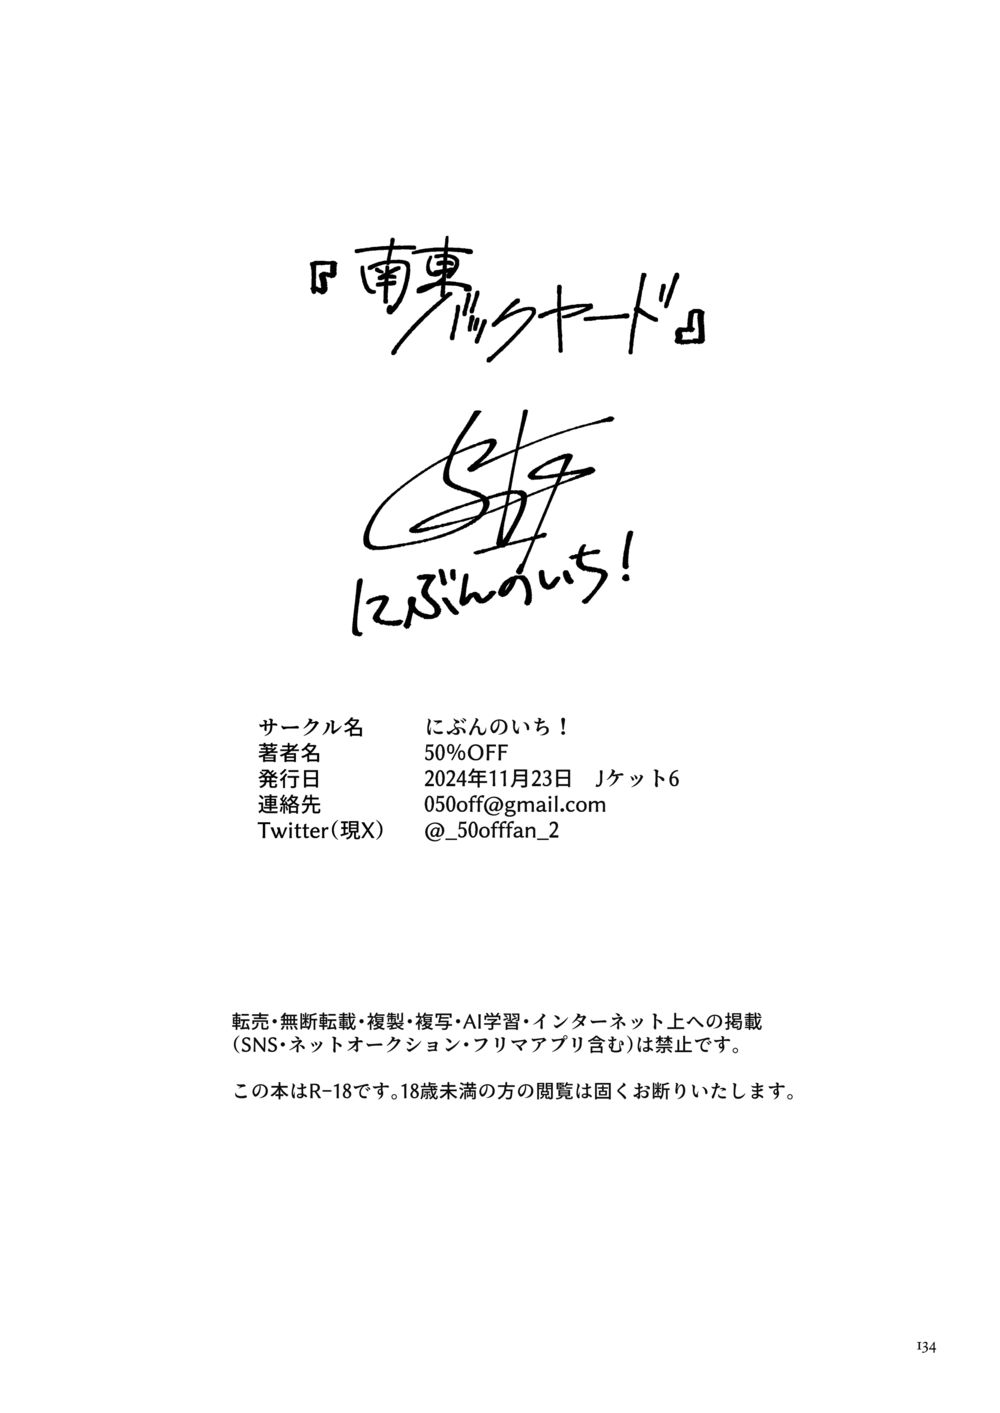 『南東
バックヤード』
にぶんのいち!
サークル名 にぶんのいち!
著者名 50%OFF
発行日 2024年11月23日 Jケット6
連絡先 050off@gmail.com
Twitter(現X) @_50offfan_2
転売・無断転載・複製・複写・AI学習・インターネット上への掲載
(SNS・ネットオークション・フリマアプリ含む)は禁止です。
この本はR-18です。18歳未満の方の閲覧は固くお断りいたします。
134